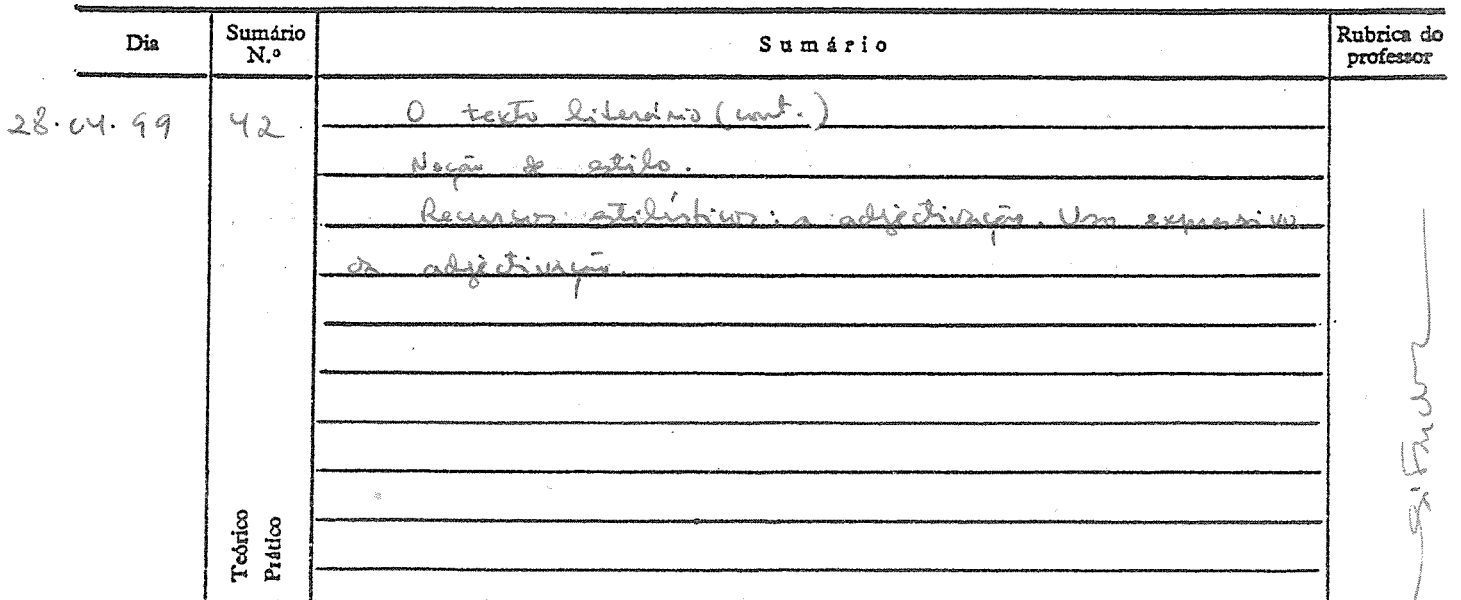 Dia Sumário N.º Sumário Rubrica do professor
28.04.99 42 O texto literário (cont.)
Noção de estilo.
Recursos estilísticos: a adjectivação. Uso expressivo
da adjectivação.
Teórico
Prático